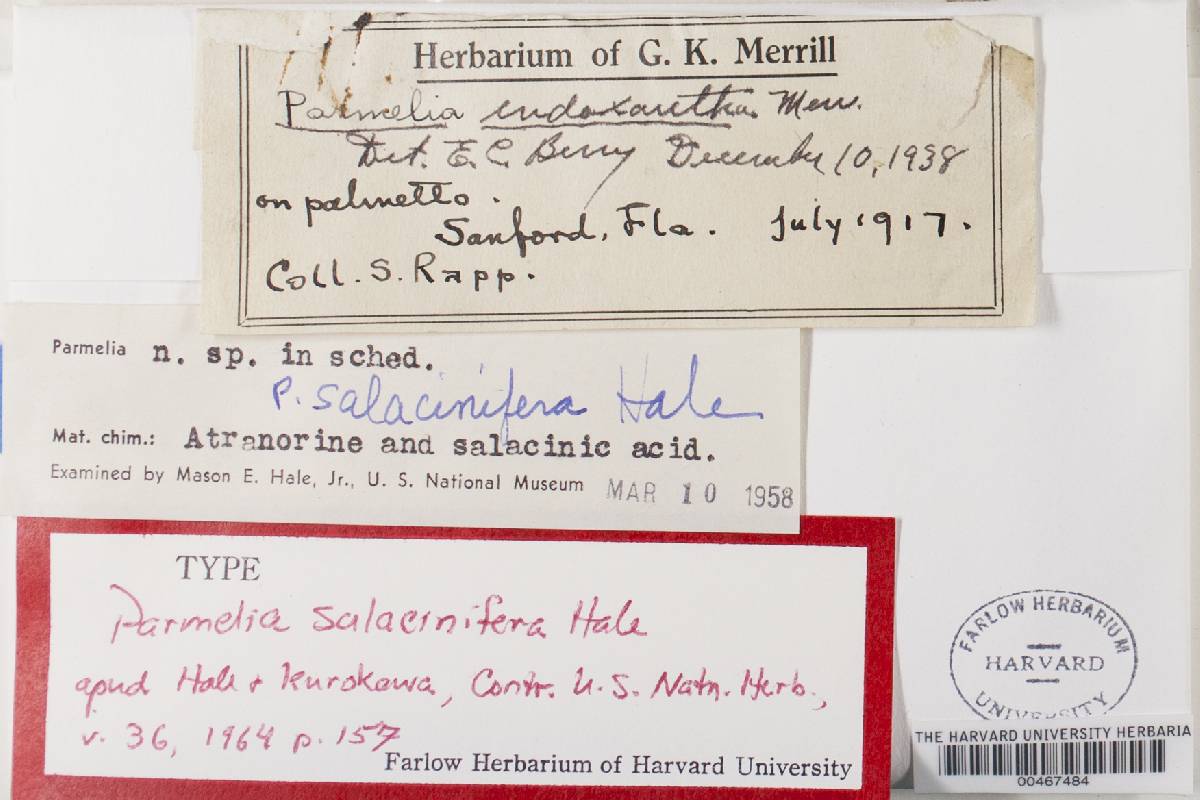 Herbarium of G. K. Merrill
Parmelia endoxantha Merr.
Det. E. C. Berry December 10, 1938
on palmetto.
Sanford, Fla. July 1917.
Coll. S. Rapp.
Parmelia n. sp. in sched.
P. salacinifera Hale
Mat. chim.: Atranorine and salacinic acid.
Examined by Mason E. Hale, Jr., U. S. National Museum MAR 10 1958
TYPE
Parmelia salacinifera Hale
apud Hale + Kurokawa, Contr. U.S. Natn. Herb.,
v. 36, 1964 p. 157
Farlow Herbarium of Harvard University
FARLOW HERBARIUM
HARVARD
UNIVERSITY
THE HARVARD UNIVERSITY HERBARIA
00467484